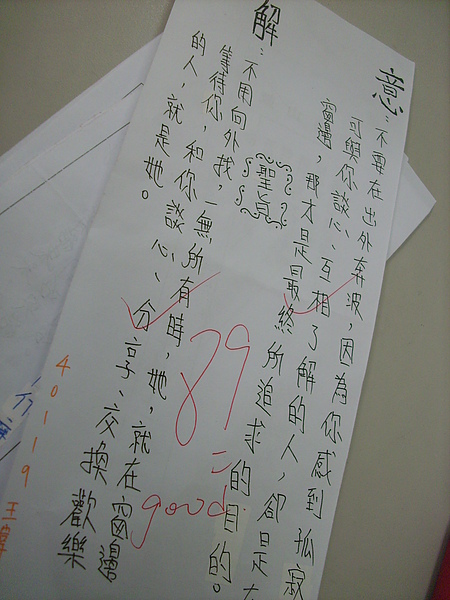 意：不要在出外奔波，因為你感到孤寂
可與你談心、互相了解的人，卻是在
窗邊，那才是最終所追求的目的。
聖
解：不用向外找，一無所有時，她，就在窗邊
等待你，和你談心、分享、交換歡樂
的人，就是她。
89
good
40119 王